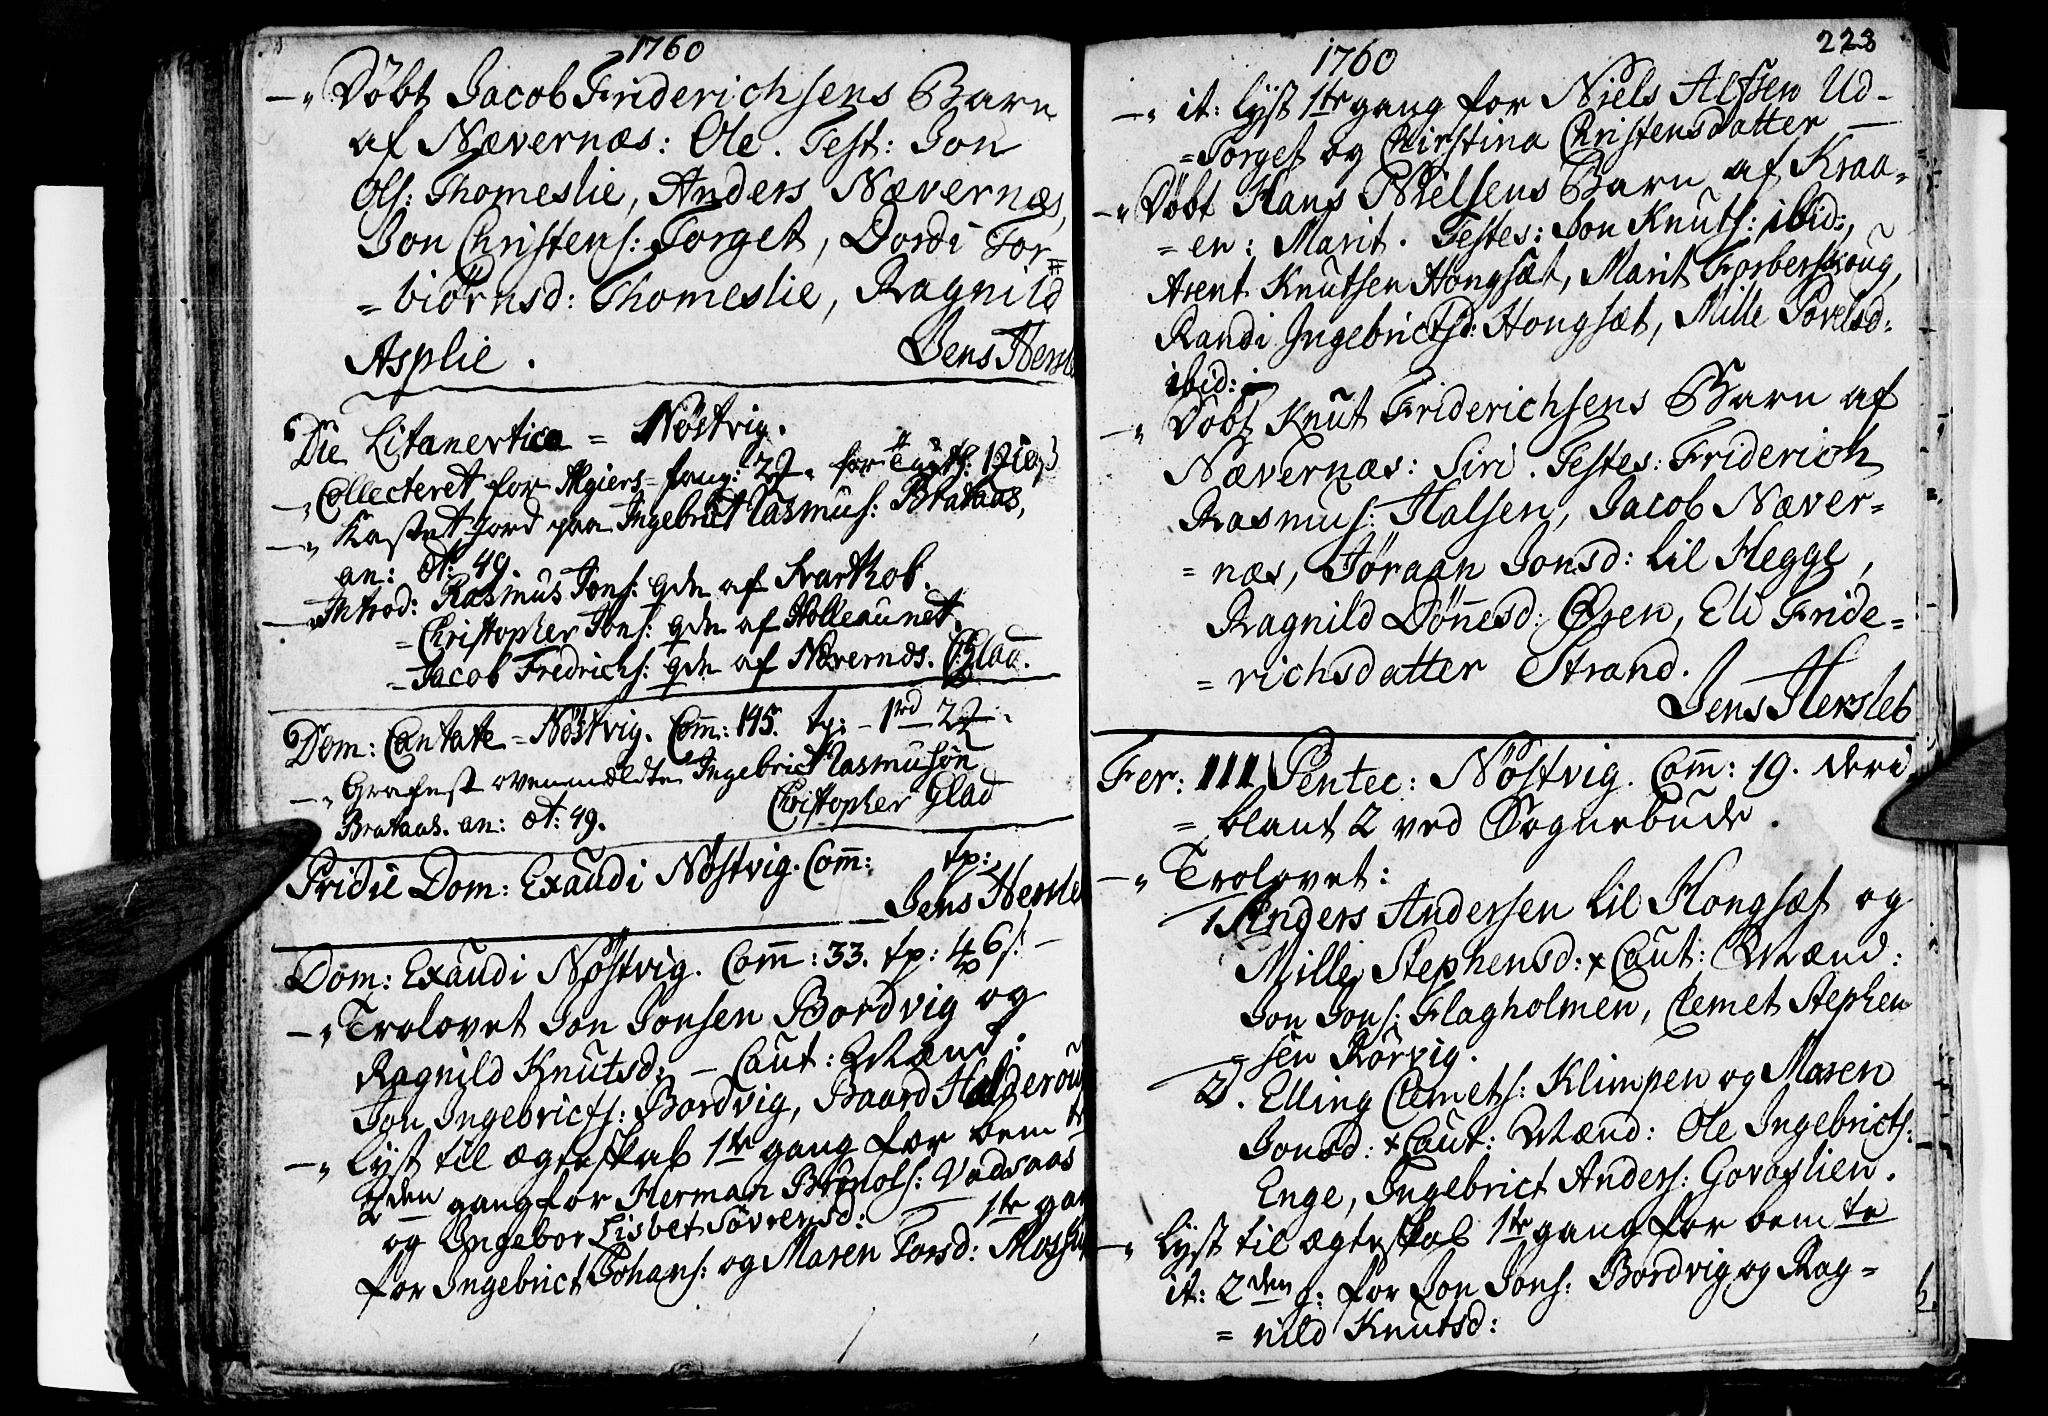 1760
—" Döbt Jacob Friderichsens Barn
af Nævernæs: Ole. Test: Jon
Ols: Thomeslie, Anders Nævernæs,
Jon Christens: Torget, Dordi Tor=
= biörnsd: Thomeslie, Ragnild
Asplie. Jens Hersle
Die Litanevtica = Nöstvig.
—" Collecteret for Algiers = fang: 22 for
—" Kastet Jord paa Ingebrict Rasmus: Brataas,
an: æt: 49.
—" Introd: Rasmus Jons: qde af Svarthob.
= Christopher Jons: qde af Holleaunet.
= Jacob Fredrichs: qde af Nævernæs. C: Glad.
Dom: Cantate = Nöstvig. Com: 145. tp: – 1rd 22
—" Grafæst ovenmældte Ingebrict Rasmusön
Brataas. an: æt: 49. Christopher Glad
Pridie Dom: Exaudi Nöstvig. Com: tp:
Jens Hersle
Dom: Exaudi Nöstvig. Com: 33. tp: 4 6 s! –
—" Trolovet Jon Jonsen Bordvig og
Ragnild Knutsd: – Caut: Mænd:
Jon Ingebricts: Bordvig, Baard Halderou
—" lyst til ægteskab 1te gang for bem te
2den gang for Herman Brynols: Vadsaas
og Ingebor Lisbet Sövrensd: — 1te gan
for Ingebrict Johans: og Maren Torsd:
1760
223
—" it: lyst 1te gang for Niels Alfsen Ud-
=Torget og Chirstina Christensdatter —
—" Döbt Hans Nielsens Barn af Kraa-
= en: Marit. Testes: Jon Knuts: ibid:,
Arent Knutsen Hongsæt, Marit Forberskoug,
Randi Ingebrictsd: Hongsæt, Mille Povelsd:
ibid:
—" Döbt Knut Friderichsens Barn af
Nævernæs: Siri. Testes: Friderich
Rasmus: Halsen, Jacob Næver-
= næs, Jöraan Jonsd: lil Hegge,
Ragnild Dönnesd: Ösen, Eli Fride=
= richsdatter Strand.
Jens Hersleb
Fer: III Pentec: Nöstvig. Com: 19. deri
= blant 2 ved Sognebude.
—" Trolovet:
1 Anders Andersen lil Hongsæt og
Mille Stephensd: x Caut: Mænd:
Jon Jons: Flagholmen, Clemet Stephen
= sen Rörvig.
2. Elling Clemets: Klimpen og Maren
Jonsd: x Caut: Mænd: Ole Ingebricts:
Enge, Ingebrict Anders:
—" lyst til ægteskab 1te gang for bem te
it: 2den g: for Jon Jons: Bordvig og Rag=
= nild Knutsd: